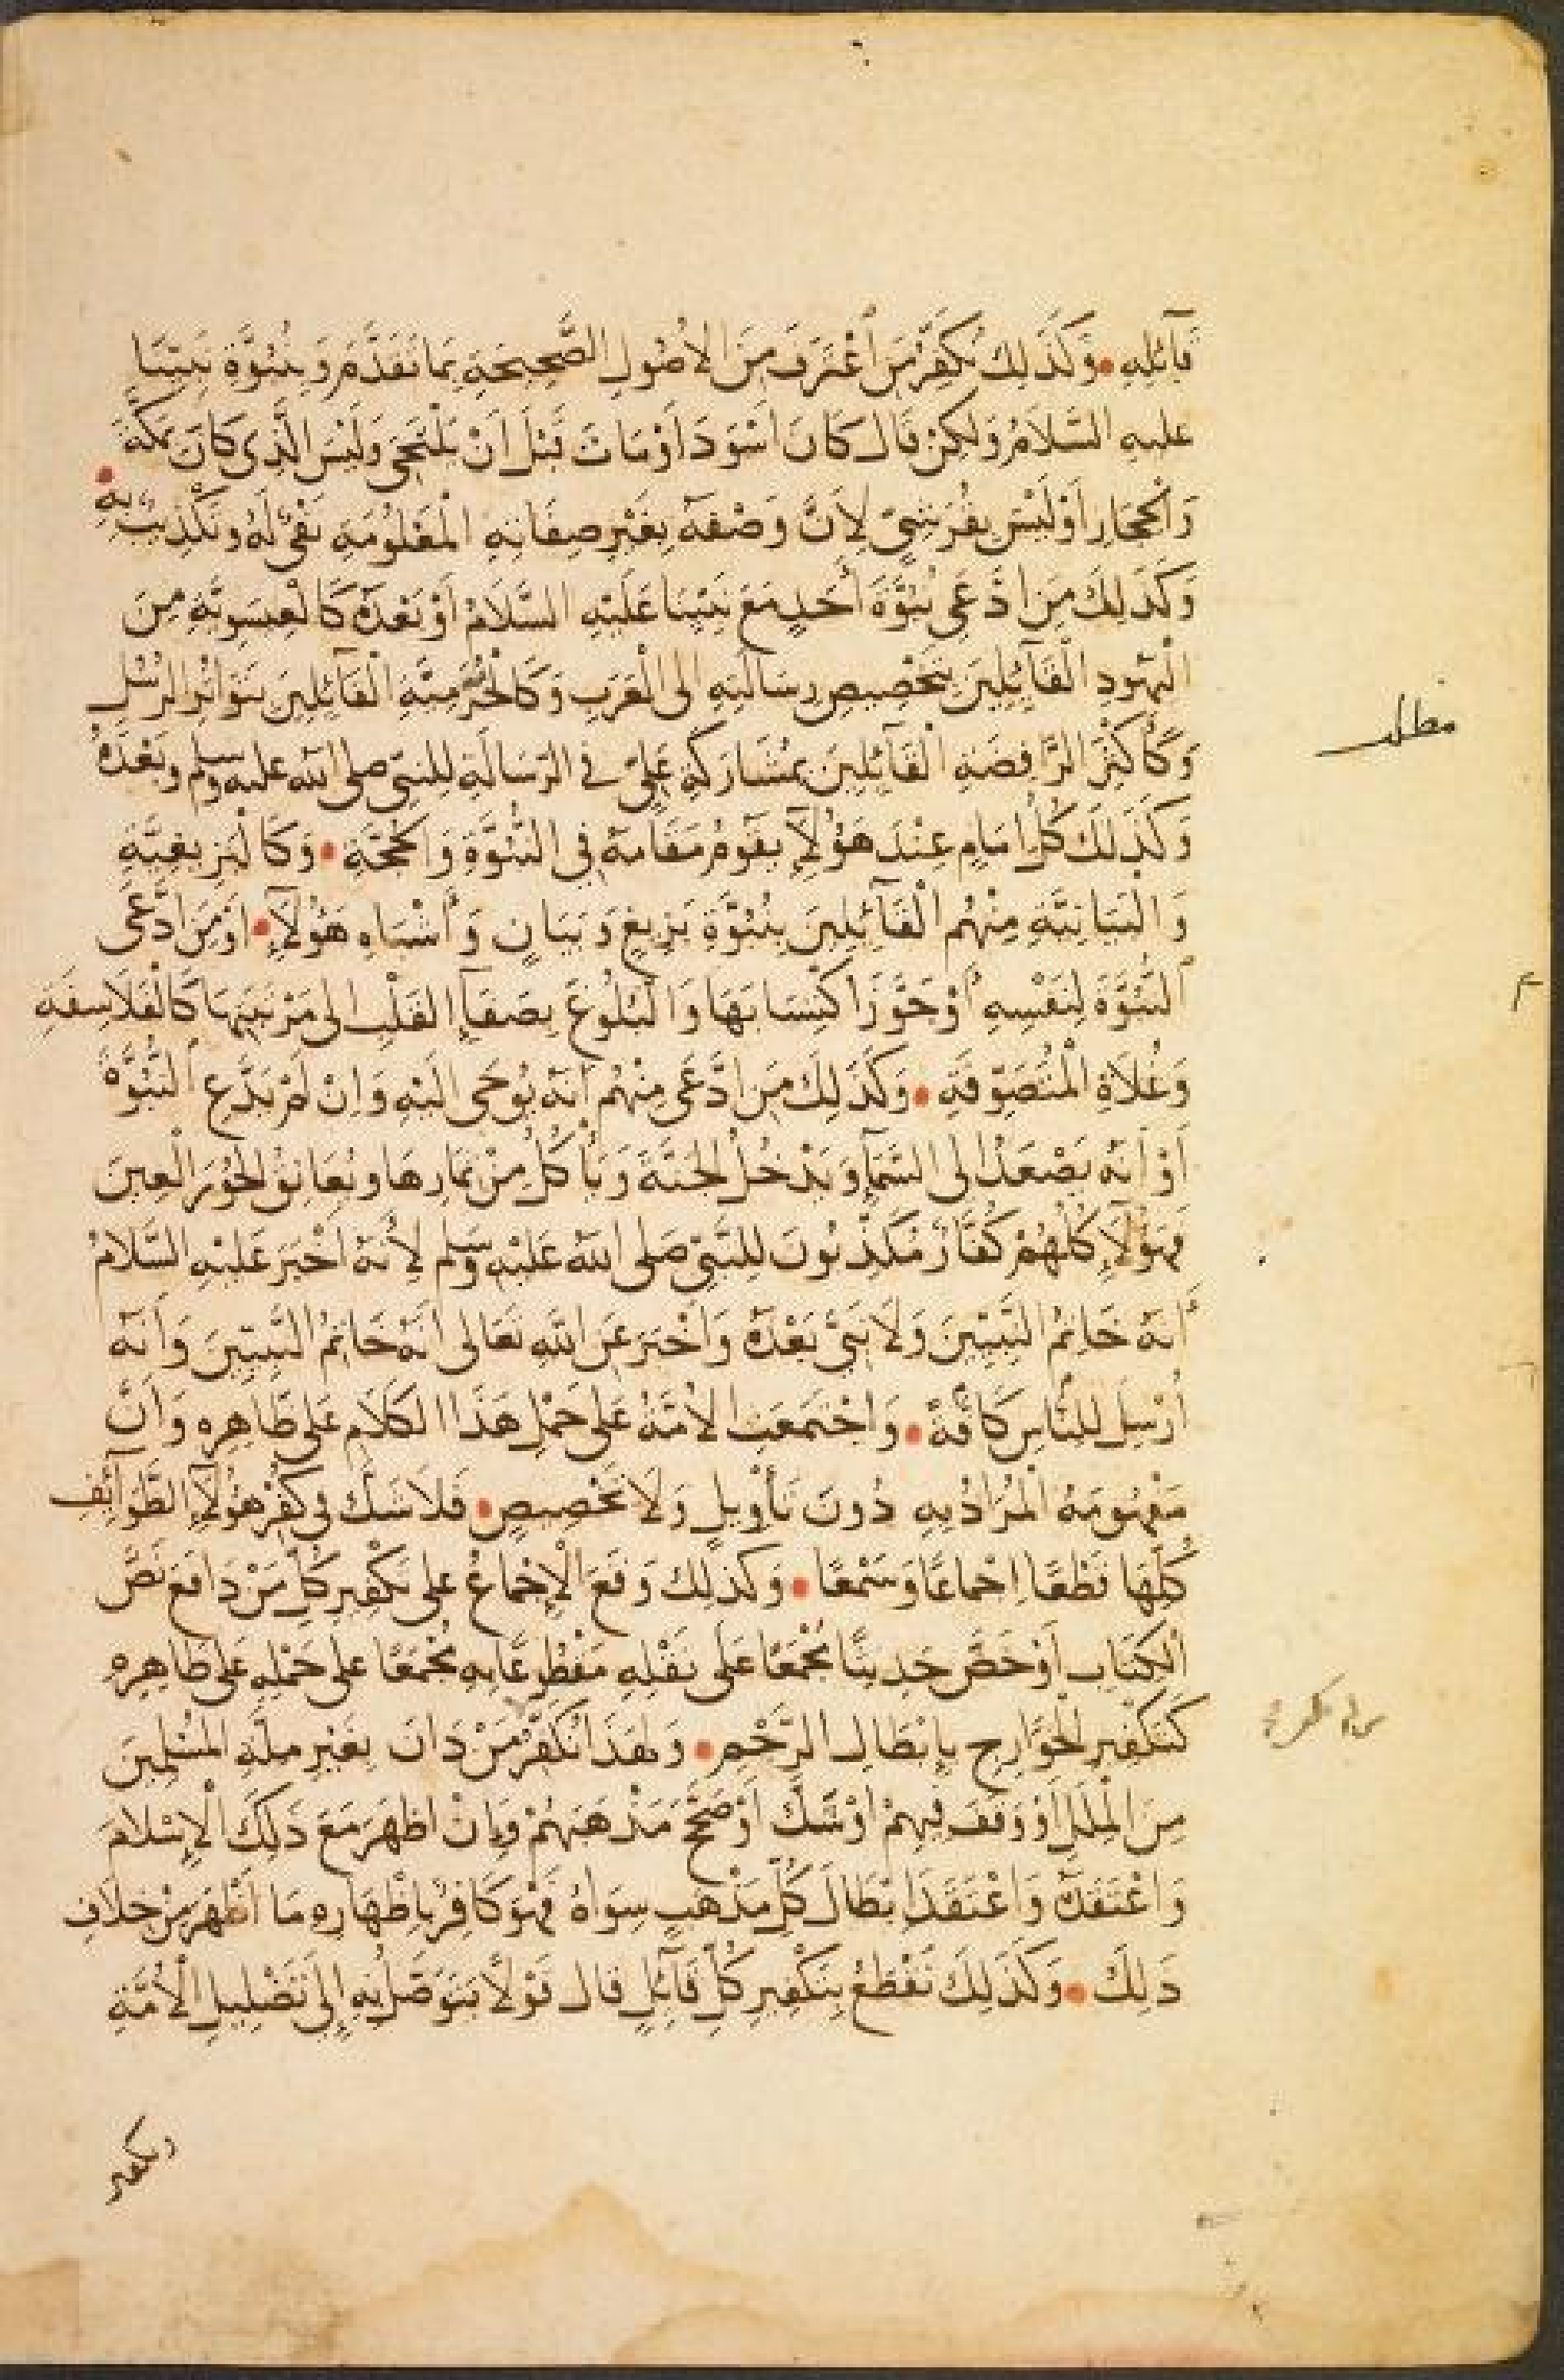 قَآئِلِهِ • وَكَذَلِكَ نُكَفِّرُ مَنِ اعْتَرَفَ مِنَ الاُصُولِ الصَّحِيحَةِ بِمَا تَقَدَّمَ وَبِنُبُوَّةِ نَبِيِّنَا
عليه السَّلَامُ وَلكِنْ قَالَ كَانَ اَسْوَدَ اَوْ مَاتَ قَبْلَ اَنْ يَلْتَحِيَ وَلَيْسَ الَّذِى كَانَ بِمَكَّةَ
وَالْحِجَازِ اَوْ لَيْسَ بِقُرَشِيٍّ لِاَنَّ وَصْفَهُ بِغَيْرِ صِفَاتِهِ الْمَعْلُومَةِ نَفْىٌ لَهُ وَتَكْذِيبٌ بِهِ •
وَكَذَلِكَ مَنِ ادَّعَى نُبُوَّةَ اَحَدٍ مَعَ نَبِيِّنَا عَلَيْهِ السَّلَامُ اَوْ بَعْدَهُ كَالْعِيسَوِيَّةِ مِنَ
الْيَهُودِ الْقَآئِلِينَ بِتَخْصِيصِ رِسَالَتِهِ الى الْعَرَبِ وَكَالْخُرَّمِيَّةِ الْقَآئِلِينَ بِتَوَاتُرِ الرُّسُلِ
وَكَأَكْثَرِ الرَّافِضَةِ الْقَآئِلِينَ بِمُشَارَكَةِ عَلِيٍّ فى الرِّسَالَةِ لِلنَّبِيِّ صلى الله عليه وسلم وَبَعْدَهُ
وَكَذَلَكَ كُلُّ اِمَامٍ عِنْدَ هَؤُلَآءِ يَقُومُ مَقَامَهُ فِي النُّبُوَّةِ وَالْحُجَّةِ • وَكَالْبَزِيغِيَّةِ
وَالْبَيَانِيَّةِ مِنْهُم الْقَآئِلِينَ بِنُبُوَّةِ بَزِيغٍ وَبَيَانٍ وَأَشْبَاهِ هَؤُلَآءِ • اَوْ مَنِ ادَّعَى
النُّبُوَّةَ لِنَفْسِهِ أَوْ جَوَّزَ اكْتِسَابَهَا وَالْبُلُوغَ بِصَفَآءِ القَلْبِ الى مَرْتَبَتِهَا كَالْفَلَاسِفَةِ
وَغُلَاةِ الْمُتَصَوِّفَةِ • وَكَذَلِكَ مَنِ ادَّعَى مِنْهُم اَنَّهُ يُوحَى الَيْهِ وَاِنْ لَمْ يَدَّعِ النُّبُوَّةَ
اَوْ اَنَّهُ يَصْعَدُ الى السَّمَآءِ وَيَدْخُلُ الجَنَّةَ وَيَأْكُلُ مِنْ ثِمَارِهَا وَيُعَانِقُ الحُورَ الْعِينَ
فَهَؤُلَآءِ كُلُّهُمْ كُفَّارٌ مُكَذِّبُونَ لِلنَّبِيِّ صَلى اللهُ عَلَيْهِ وسلم لِاَنَّهُ اَخْبَرَ عَلَيْهِ السَّلَامُ
أَنَّهُ خَاتِمُ النَّبِيِّينَ وَلَا نَبِيَّ بَعْدَهُ وَاَخْبَرَ عَنِ اللهِ تَعَالى اَنَّهُ خَاتِمُ النَّبِيِّينَ وَاَنَّهُ
اُرْسِلَ لِلنَّاسِ كَآفَّةً • وَاجْتَمَعَتِ الاُمَّةُ عَلى حَمْلِ هَذَا الكَلَامِ عَلى ظَاهِرِهِ وَاَنَّ
مَفْهُومَهُ الْمُرَادُ بِهِ دُونَ تَأْوِيلٍ وَلَا تَخْصِيصٍ • فَلَا شَكَّ فى كُفْرِ هَؤُلَآءِ الطَّوَآئِفِ
كُلِّهَا قَطْعًا اِجْمَاعًا وَسَمْعًا • وَكَذلِكَ وَقَعَ الْاِجْمَاعُ على تَكْفِيرِ كُلِّ مَنْ دَافَعَ نَصَّ
الْكِتَابِ اَوْ خَصَّ حَدِيثًا مُجْمَعًا عَلَى نَقْلِهِ مَقْطُوعًا بِهِ مُجْمَعًا على حَمْلِهِ عَلى ظَاهِرِهِ
كَتَكْفِيرِ الْخَوَارِجِ بِاِبْطَالِ الرَّجْمِ • وَلِهَذَا نُكَفِّرُ مَنْ دَانَ بِغَيْرِ مِلَّةِ المُسْلِمِينَ
مِنَ الْمِلَلِ اَوْ وَقَفَ فِيهِمْ اَوْ شَكَّ اَوْ صَحَّحَ مَذْهَبَهُمْ وَاِنْ اَظْهَرَ مَعَ ذَلِكَ الْاِسْلَامَ
وَاعْتَقَدَهُ وَاعْتَقَدَ اِبْطَالَ كُلِّ مَذْهَبٍ سِوَاهُ فَهُوَ كَافِرٌ بِاِظْهَارِهِ مَا اَظْهَرَ مِنْ خِلَافِ
ذَلِكَ • وَكَذَلِكَ نَقْطَعُ بِتَكْفِيرِ كُلِّ قَآئِلٍ قَالَ قَوْلًا يَتَوَصَّلُ بِهِ اِلَى تَضْلِيلِ الْاُمَّةِ
وتكفير
مطلب